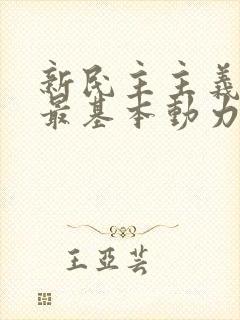 新民主主義
最基本動力
王亞芸